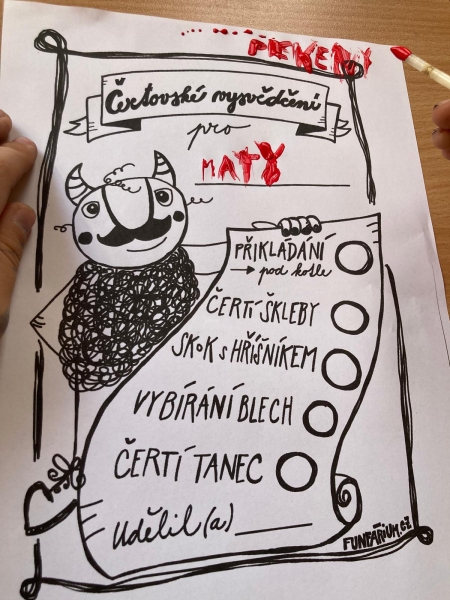 PEKELNÝ
Čertovské vysvědčení
pro
MATY
PŘIKLÁDÁNÍ
→ pod kotle
ČERTÍ ŠKLEBY
SKOK S HŘÍŠNÍKEM
VYBÍRÁNÍ BLECH
ČERTÍ TANEC
Udělil(a)
FUNFÁRIUM.CZ